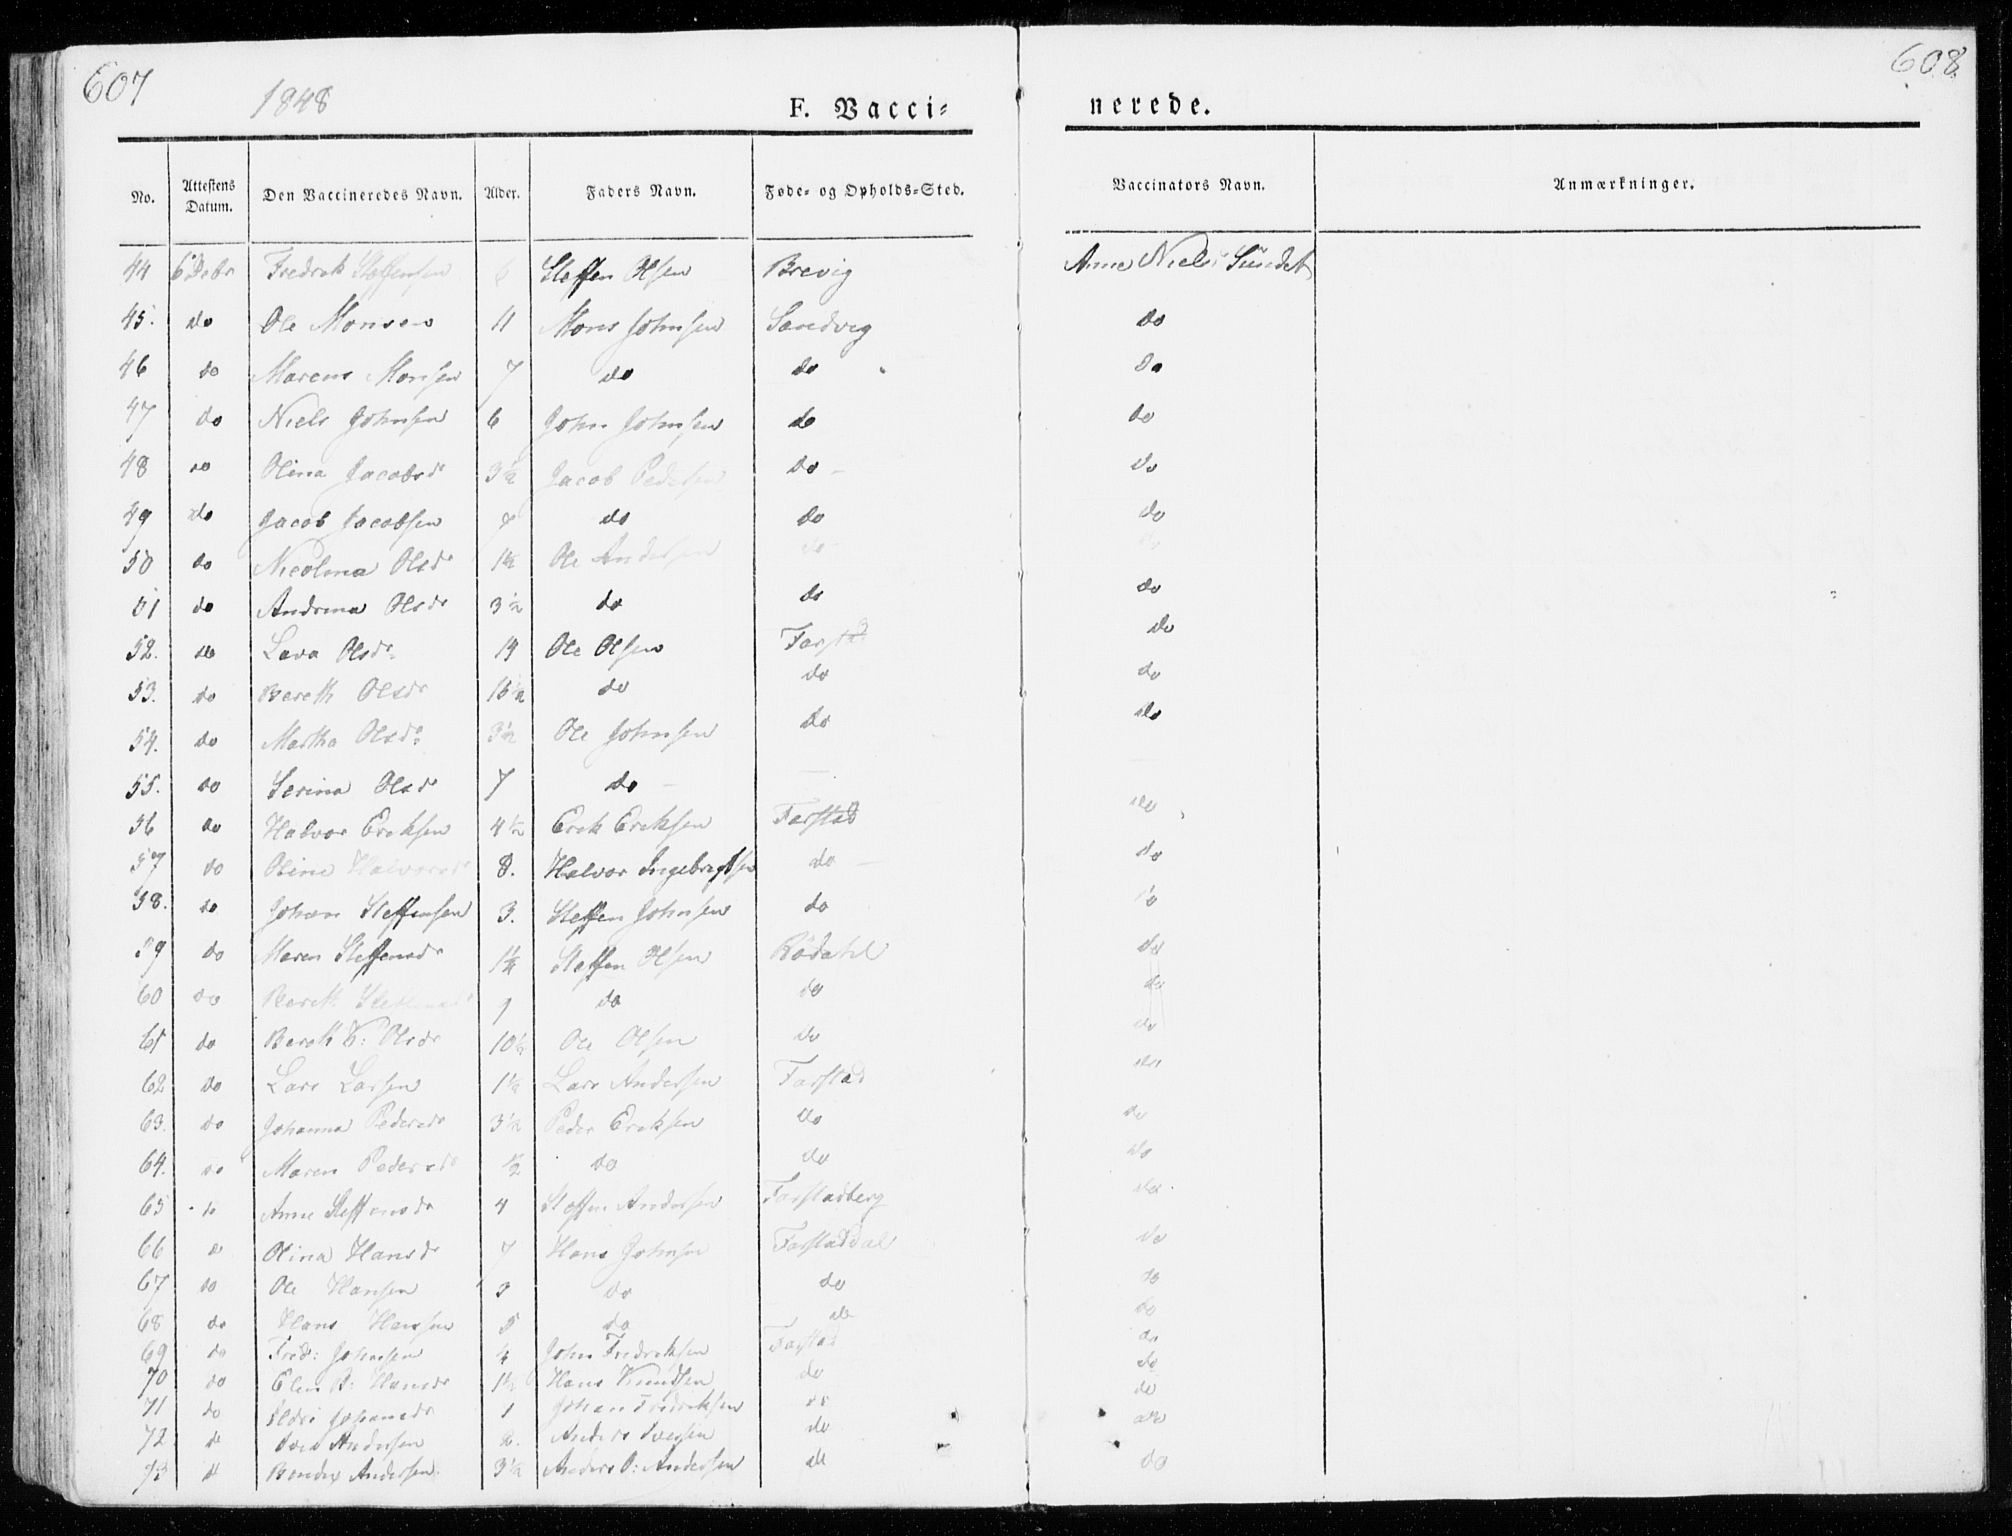 607 608
1848 F. Vacci= nerede.
No. Attestens Datum. Den Vaccineredes Navn. Alder. Faders Navn. Føde= og Opholds=Sted. Vaccinators Navn. Anmærkninger.
44 6 Fredrik Steffensen 6 Steffen Olsen Brevig Anne Niels Sundet
45. do Ole Monsen 11 Mons Johnsen Sandvig do
46 do Marens Monsen 7 do do do
47 do Niels Johnsen 6 John Johnsen do do
48 do Olina Jacobsdr 3½ Jacob Pedersen do - do
49 do Jacob Jacobsen do do do
50 do Nicolina Olsdr 1½ Ole Andersen do do
51 do Andrina Olsdr 3½ do do do
52. do Lava Olsdr 14 Ole Olsen Farstad do
53. do Bereth Olsdr 16½ do do do
54. do Martha Olsdr 3½ Ole Johnsen do do
55. do Serina Olsdr 7 do - — —
56 do Halvor Eriksen 4½ Erik Eriksen Farstad do
57 do Oline Halvorsdr 8. Halvor Ingebrigtsen do - do
58. do Johan Steffensen 3. Steffen Johnsen do do
59 do Maren Steffensdr 1½ Steffen Olsen Rödahl do
60 do Bereth Steffensdr 9 do do do
61 do Bereth Olsdr 10½ Ole Olsen do do
62 do Lars Larsen 1½ Lars Andersen Farstad do
63. do Johanna Pedersdr 3½ Peder Eriksen do do
64. do Maren Pedersdr ½ do do do
65 do Anne Steffensdr 4 Steffen Andersen Farstadberg do
66 do Olina Hansdr 7 Hans Johnsen Farstaddal do
67 do Ole Hansen 3 do do do
68 do Hans Hansen 5 do do do
69 do Fred: Johnsen 4 John Fredriksen Farstad do
70 do Elen B: Hansdr 1½ Hans Knudsen do do
71 do Johansdr 1 Johan Fredriksen do do
72 do Andersen 2. Anders Iversen do do
73 do Andersen 3½ Anders O: Andersen do do